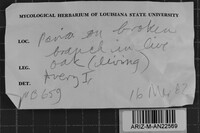 MYCOLOGICAL HERBARIUM OF LOUISIANA STATE UNIVERSITY
LOC. on broken
branch in live
oak (living)
LEG. Avery I.
DET.
16 Mar
ARIZ-M-AN22569